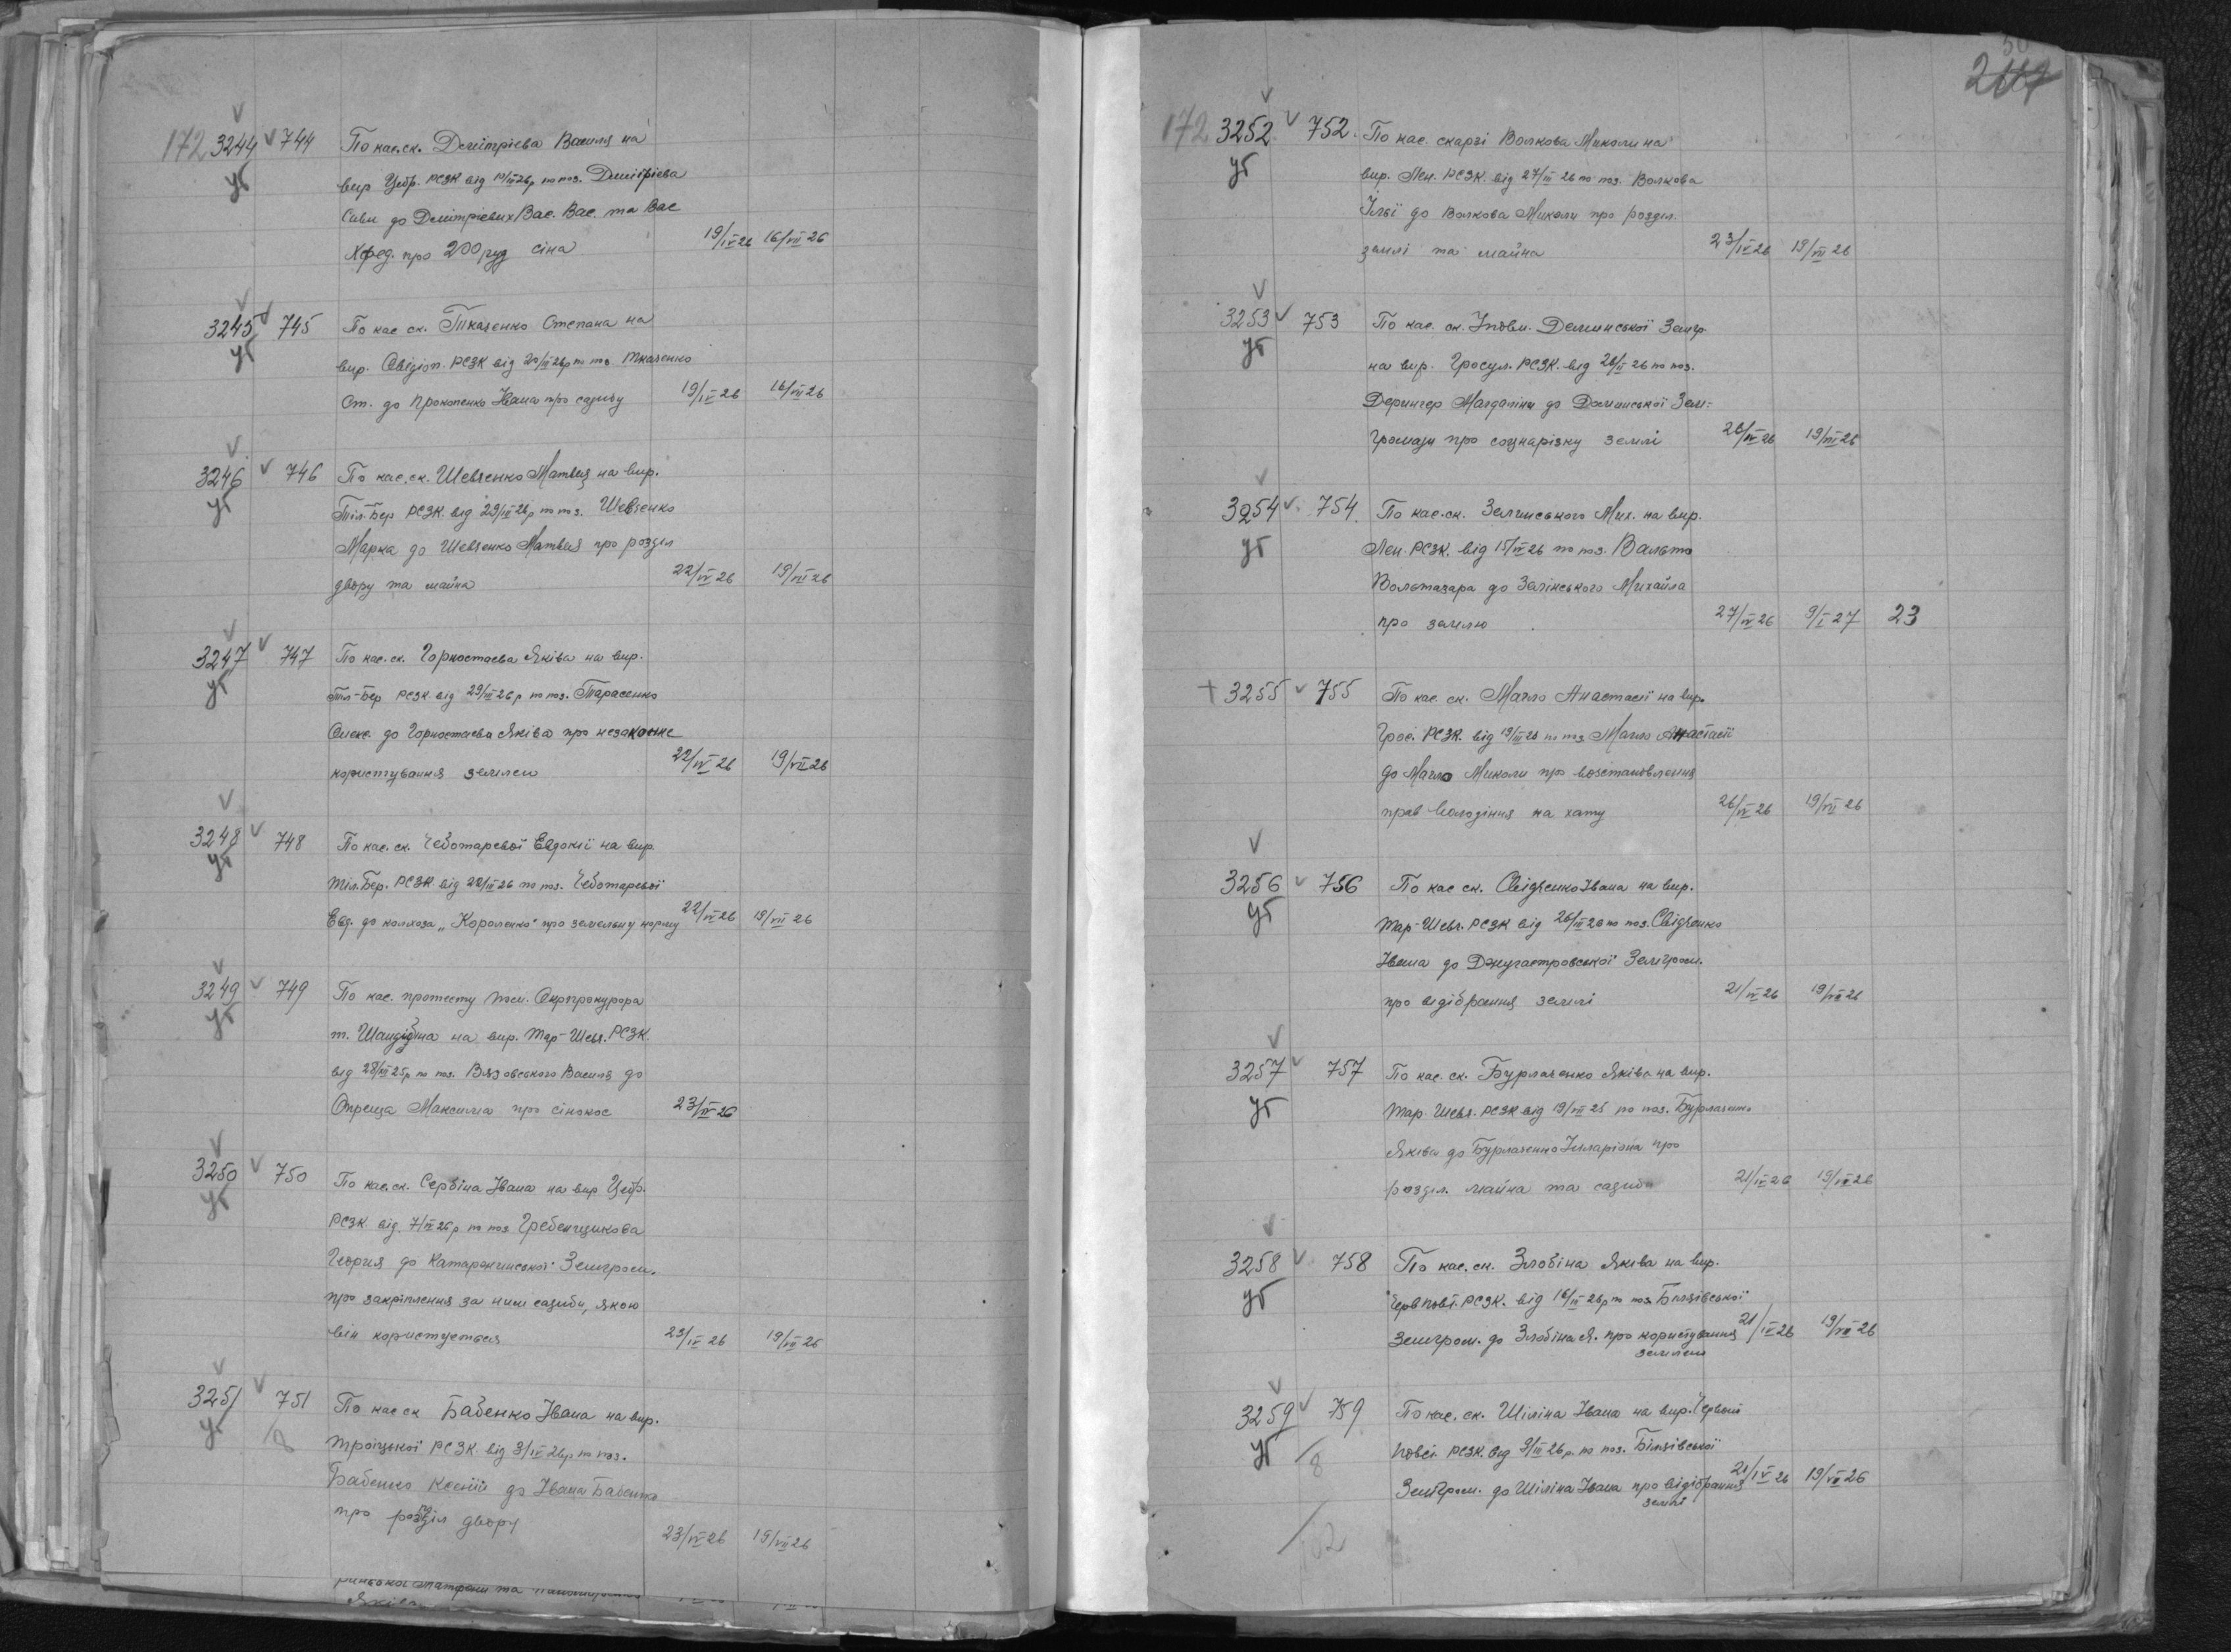 172 3244 744 По кас. ск. Дмітрієва Василя на
уг вир. Цебр. РСЗК від 19/III 26 р. по поз. Дмітрієва
Сави до Дмітрієвих Вас. Вас. та Вас
Хфед. про 200 пуд сіна 19/IV 26 16/VII 26
3245 745 По кас ск. Ткаченко Степана на
уг вир. Овідіоп. РСЗК від 20/III 26 р по поз. Ткаченко
Ст. до Прокопенко Івана про садибу 19/IV 26 16/VII 26
3246 746 По кас. ск. Шевченко Матвія на вир.
уг Тіл-Бер РСЗК. від 29/III 26 р по поз. Шевченко
Марка до Шевченко Матвія про розділ
двору та майна 22/IV 26 19/VII 26
3247 747 По кас. ск. Горностаєва Яківа на вир.
уг Тіл-Бер РСЗК від 29/III 26 р по поз. Тарасенко
Олекс. до Горностаєва Яківа про незаконне
користування землею 22/IV 26 19/VII 26
3248 748 По кас. ск. Чеботарєвої Евдокії на вир.
уг Тіл. Бер. РСЗК від 22/III 26 по поз. Чеботарєвої
Евд. до колхоза „Короленко" про земельну норму 22/IV 26 19/VII 26
3249 749 По кас. протесту пом. Окрпрокурора
уг т. на вир. Тар-Шевч. РСЗК.
від 28/XII 25 р по поз. Вязовського Василя до
Максима про сінокос 23/IV 26
3250 750 По кас. ск. Сербіна Івана на вир Цебр.
уг РСЗК від. 7/IV 26 р по поз Гребенщикова
Георгія до Катаржинської Земгром.
про закріплення за ним садиби, якою
він користується 23/IV 26 19/VII 26
3251 751 По кас ск Бабенко Івана на вир.
уг 8 Троіцької РСЗК від 8/IV 26 р по поз.
Бабенко Ксенії до Івана Бабенко
про розділ двору 23/IV 26 19/VII 26
та
Яківа
172 3252 752. По кас. скарзі Волкова Миколи на
уг вир. Лен. РСЗК. від 27/III 26 по поз. Волкова
Ільї до Волкова Миколи про розділ
землі та майна 23/IV 26 19/VII 26
3253 753 По кас. ск. Уповн. Земгр.
уг на вир. Гросул. РСЗК. від 26/II 26 по поз.
Дерингер Магдаліни до Зем-
громади про соцнарізку землі 26/IV 26 19/VII 26
3254 754 По кас. ск. Зелинського Мих. на вир.
уг Лен. РСЗК. від 15/IV 26 по поз. Вальто
Вольтазара до Зелінського Михайла
про землю 27/IV 26 9/I 27 23
+ 3255 755 По кас. ск. Мачло Анастасії на вир.
РСЗК. від 19/III 26 по поз Мачло Анастасії
до Мачло Миколи про возстановлення
прав володіння на хату 26/IV 26 19/VII 26
3256 756 По кас ск. Свідченко Івана на вир.
уг Тар-Шевч. РСЗК від 26/III 26 по поз. Свідченко
Івана до Джугастровської Земгром.
про відібрання землі 21/IV 26 19/VII 26
3257 757 По кас. ск. Бурлаченко Яківа на вир.
уг Тар. Шевч. РСЗК від 19/XII 25 по поз. Бурлаченко
Яківа до Бурлаченко Ілларіона про
розділ. майна та садиби 21/IV 26 19/VII 26
3258 758 По кас. ск. Злобіна Яківа на вир.
уг Черв Повст. РСЗК. від 16/III 26 р по поз. Білзівської
Земгром. до Злобіна Я. про користування 21/IV 26 19/VII 26
землею
3259 759 По кас. ск. Шиліна Івана на вир. Червон
уг 8 повст. РСЗК. від 9/III 26 р. по поз. Білзівської
Земгром. до Шиліна Івана про відібрання 21/IV 26 19/VII 26
землі
102